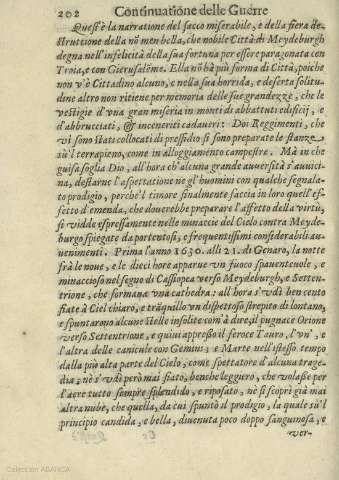 202 Continuatione delle Guerre
Quest'è la narratione del sacco miserabile, e della fiera de-
struttione della nō men bella, che nobile Città di Meydeburgh
degna nell'infelicità della sua fortuna per essere paragonata con
Troia, e con Gierusalēme. Ella nō hà più forma di Città, poiche
non v'è Cittadino alcuno, e nella sua horrida, e deserta solitu-
dine altro non ritiene per memoria delle sue grandezze, che le
vestigie d'vna gran miseria in monti di abbattuti edificij, e
d'abbrucciati, & inceneriti cadaueri: Doi Reggimenti, che
vi sono stati collocati di pressidio si sono preparate le stanze
sù'l terrapieno, come in alloggiamento campestre. Mà in che
guisa soglia Dio, all'hora ch'alcuna grande auuersità s'auuici-
na, destarne l'aspettatione ne gl'huomini con qualche segnala-
to prodigio, perche'l timore finalmente faccia in loro quell'ef-
fetto d'emenda, che douerebbe preparare l'affetto della virtù,
si vidde espressamente nelle minaccie del Cielo contro Meyde-
burgo spiegate da portentosi, e frequentissimi considerabili au-
uenimenti. Prima l'anno 1630. alli 21. di Genaro, la notte
frà le noue, e le dieci hore apparue vn fuoco spauenteuole, e
minaccioso nel segno di Cassiopea verso Meydeburgh, e Setten-
trione, che formaua vna cathedra; all'hora s'vdì ben cento
fiate à Ciel chiaro, e trāquillo vn dispettoso strepito di lontano,
e spuntarono alcune stelle insolite com'à dire, il pugnace Orione
verso Settentrione, e quiui appresso il feroce Tauro, l'vn', e
l'altra delle canicule con Gemini; e Marte nell'istesso tempo
dalla più alta parte del Cielo, come spettatore d'alcuna trage-
dia, nè s'vdì però mai fiato, benche leggiero, che volasse per
l'aere tutto sempre splendido, e riposato, nè si scoprì già mai
altra nube, che quella, da cui spuntò il prodigio, la quale sù'l
principio candida, e bella, diuenuta poco doppo sanguinosa, e
ver-
Colección ABANCA